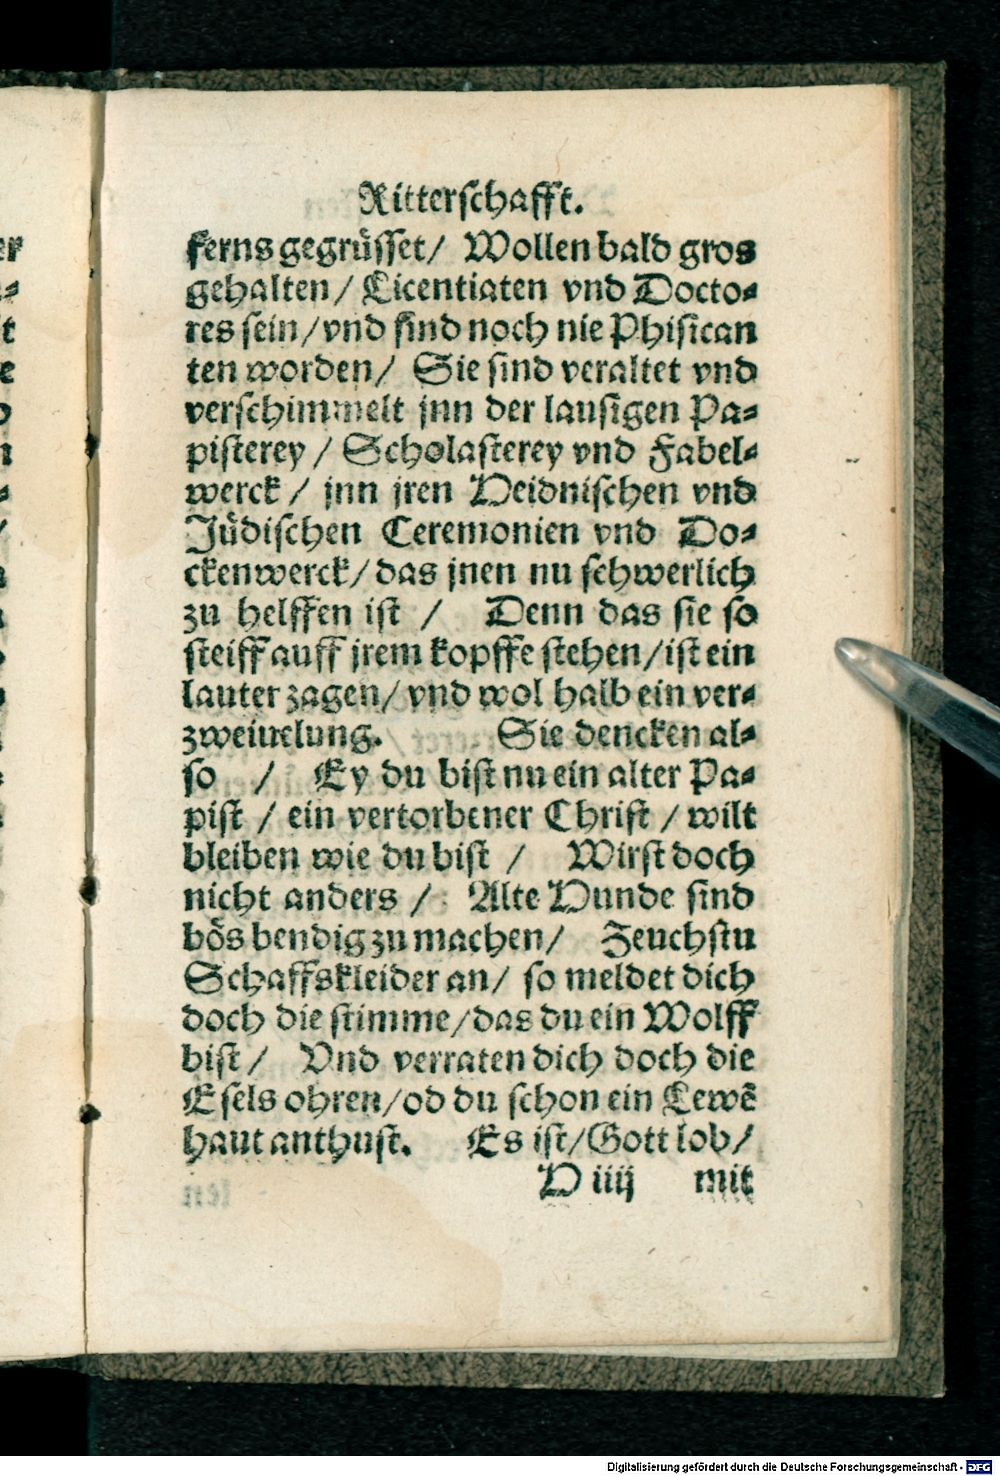 Ritterschafft.
ferns gegrüsset/ Wollen bald gros
gehalten/ Licentiaten vnd Docto⸗
res sein/vnd sind noch nie Phisican
ten worden/ Sie sind veraltet vnd
verschimmelt jnn der lausigen Pa⸗
pisterey / Scholasterey vnd Fabel⸗
werck / jnn jren Heidnischen vnd
Jüdischen Ceremonien vnd Do⸗
ckenwerck/das jnen nu schwerlich
zu helffen ist / Denn das sie so
steiff auff jrem kopffe stehen/ist ein
lauter zagen/vnd wol halb ein ver⸗
zweiuelung. Sie dencken al⸗
so / Ey du bist nu ein alter Pa⸗
pist / ein vertorbener Christ / wilt
bleiben wie du bist / Wirst doch
nicht anders / Alte Hunde sind
bös bendig zu machen/ Zeuchstu
Schaffskleider an/ so meldet dich
doch die stimme/das du ein Wolff
bist / Vnd verraten dich doch die
Esels ohren/ob du schon ein Lewē
haut anthust. Es ist/Gott lob/
H iiij mit
Digitalisierung gefördert durch die Deutsche Forschungsgemeinschaft - DFG